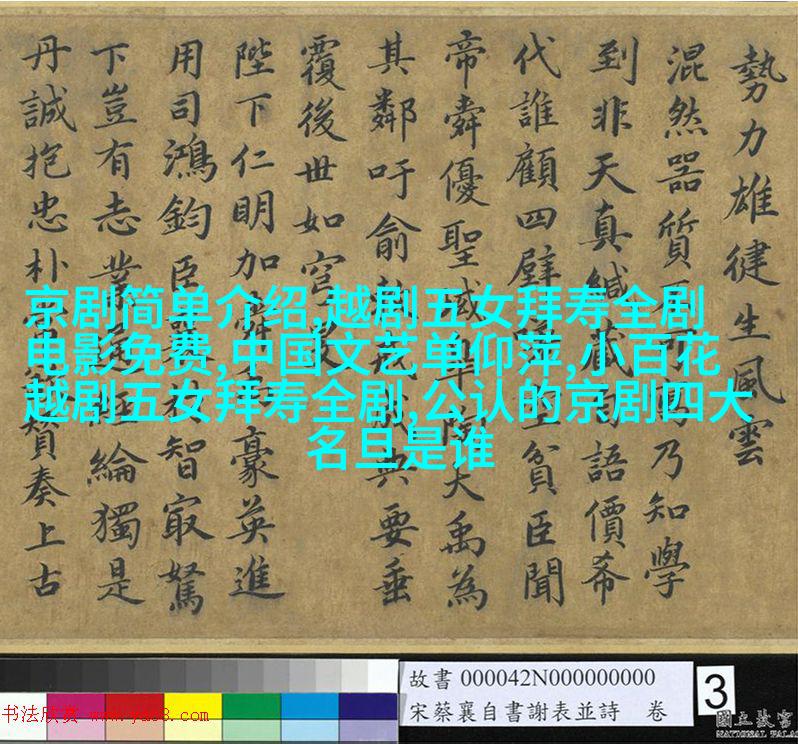 勢力雄健生風雲
混然器質不可乃知學
到非天真緘藏語價希
代誰顧四壁貧臣聞
帝舜優聖域陶大禹為
其鄰吁俞戒典要垂
覆後世如穹
陛下仁明加舜豪英進
用司鴻鈞臣智最駑
下豈有志業經綸獨是
丹誠抱忠朴贊奏上古
京剧简单介绍,越剧五女拜寿全剧
电影免费,中国文艺单仰萍,小百花
越剧五女拜寿全剧,公认的京剧四大
名旦是谁
故書 000042N000000000
宋蔡襄自書謝表並詩 卷
3
書法欣赏 www.yac8.com
國立故宮
NATIONAL PALA